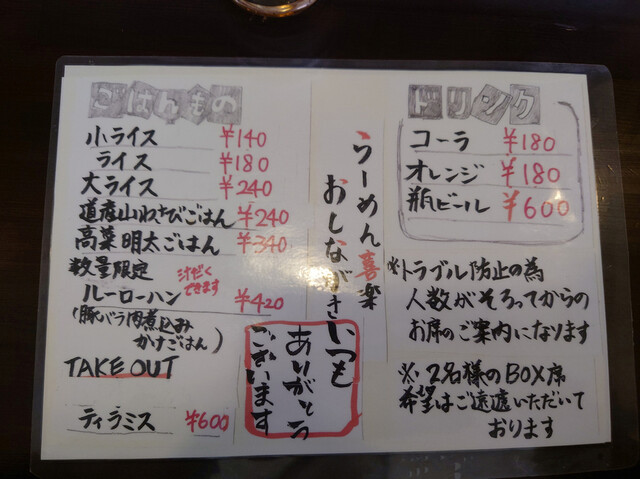 ごはんもの
小ライス ¥140
ライス ¥180
大ライス ¥240
道産山わさびごはん ¥240
高菜明太ごはん ¥340
数量限定 汁だくできます
ルーローハン ¥420
(豚バラ肉煮込みかけごはん)
TAKE OUT
ティラミス ¥600
らーめん喜楽
おしながき
いつも
ありがとう
ございます
ドリンク
コーラ ¥180
オレンジ ¥180
瓶ビール ¥600
※トラブル防止の為
人数がそろってからの
お席のご案内になります
※2名様のBOX席
希望はご遠慮いただいて
おります